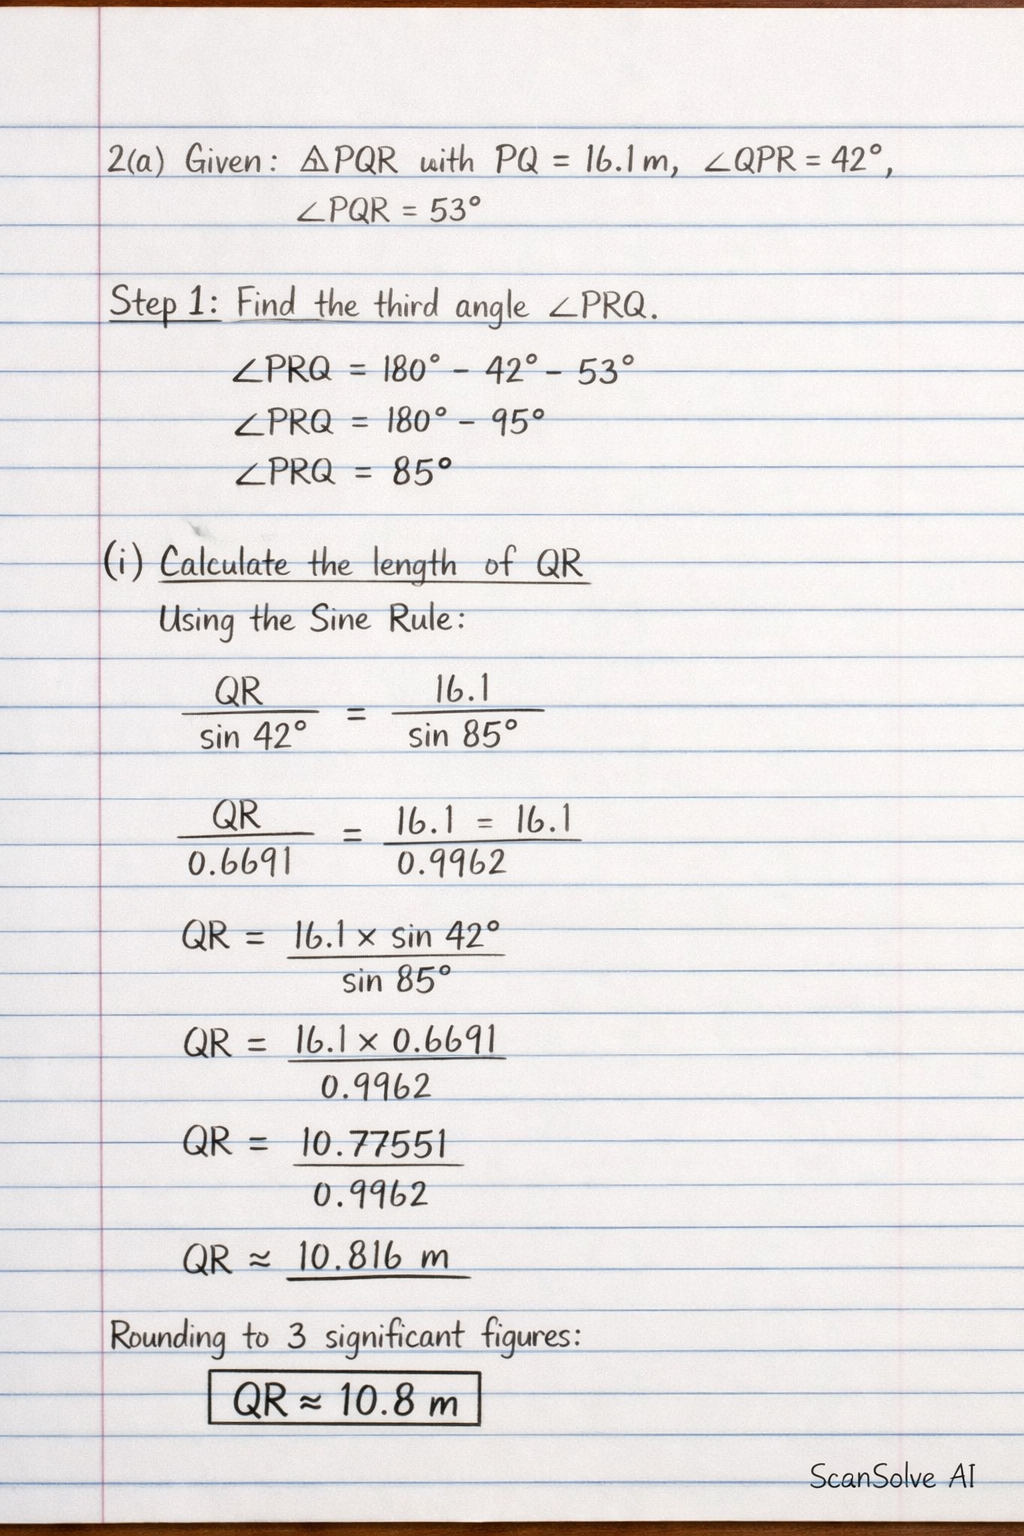 2(a) Given: △PQR with PQ = 16.1 m, ∠QPR = 42°,
∠PQR = 53°
Step 1: Find the third angle ∠PRQ.
∠PRQ = 180° - 42° - 53°
∠PRQ = 180° - 95°
∠PRQ = 85°
(i) Calculate the length of QR
Using the Sine Rule:
QR = 16.1
sin 42° sin 85°
QR = 16.1 = 16.1
0.6691 0.9962
QR = 16.1 × sin 42°
sin 85°
QR = 16.1 × 0.6691
0.9962
QR = 10.77551
0.9962
QR ≈ 10.816 m
Rounding to 3 significant figures:
QR ≈ 10.8 m
ScanSolve AI